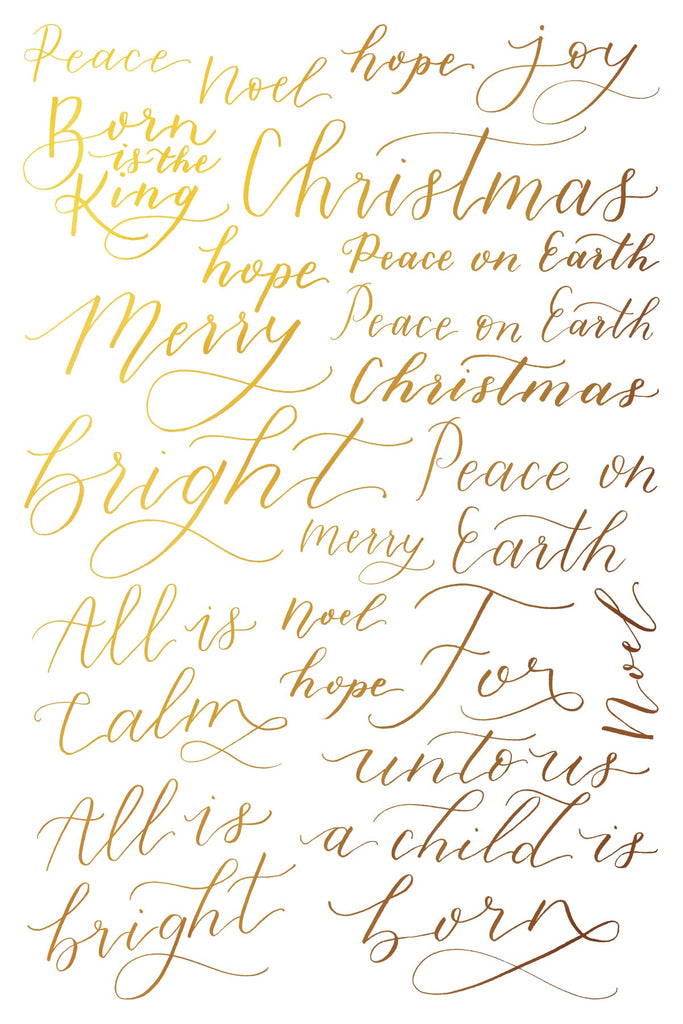 Peace
Noel
hope
joy
Born
is the
King
Christmas
hope
Peace on Earth
Merry
Peace on Earth
Christmas
bright
Peace on
Earth
merry
All is
calm
noel
hope
For
unto us
a child is
born
Noel
All is
bright